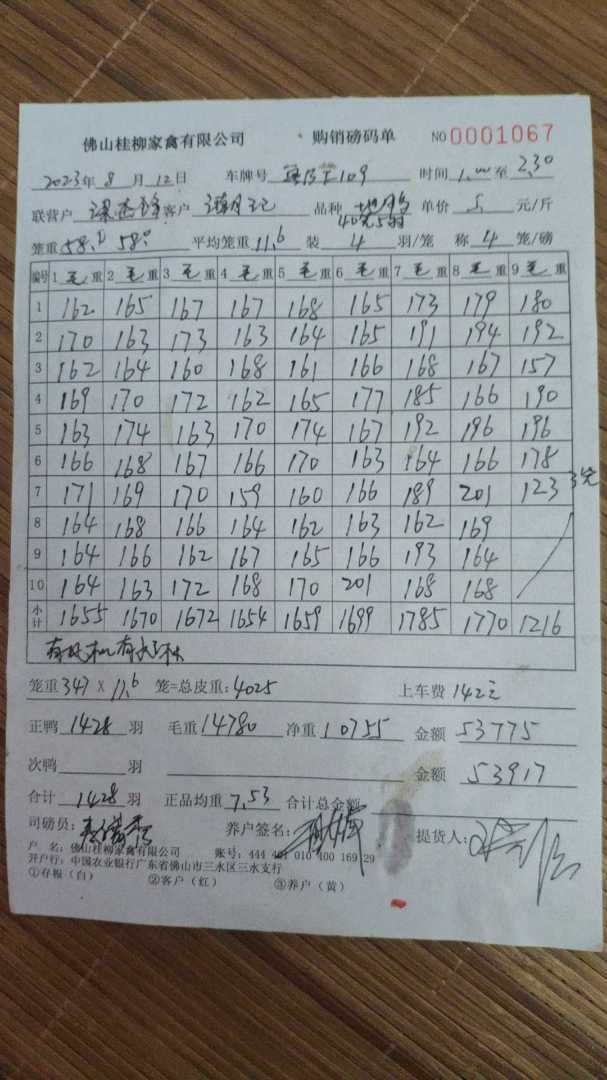 佛山桂柳家禽有限公司 购销磅码单 NO 0001067
2023年 8 月 12 日 车牌号 109 时间 1:00 至 2:30
联营户 客户 品种 单价 5 元/斤
笼重 58. 58. 平均笼重 11.6 装 4 羽/笼 称 4 笼/磅
编号 1 毛 重 2 毛 重 3 毛 重 4 毛 重 5 毛 重 6 毛 重 7 毛 重 8 毛 重 9 毛 重
1 162 165 167 167 168 165 173 179 180
2 170 163 173 163 164 165 191 194 192
3 162 164 160 168 161 166 168 167 157
4 169 170 172 162 165 177 185 166 190
5 163 174 163 170 174 167 192 196 196
6 166 168 167 166 170 163 164 166 178
7 171 169 170 159 160 166 189 201 123 3笼
8 164 168 166 164 162 163 162 169
9 164 166 162 167 165 166 193 164
10 164 163 172 168 170 201 168 168
小计 1655 1670 1672 1654 1659 1699 1785 1770 1216
笼重 347 X 11.6 笼=总皮重: 4025 上车费 142元
正鸭 1428 羽 毛重 14780 净重 10755 金额 53775
次鸭 羽 金额 53917
合计 1428 羽 正品均重 7.53 合计总金额
司磅员: 养户签名: 提货人:
户 名: 佛山桂柳家禽有限公司 账号: 444 010 400 169 29
开户行: 中国农业银行广东省佛山市三水区三水支行
①存根（白） ②客户（红） ③养户（黄）